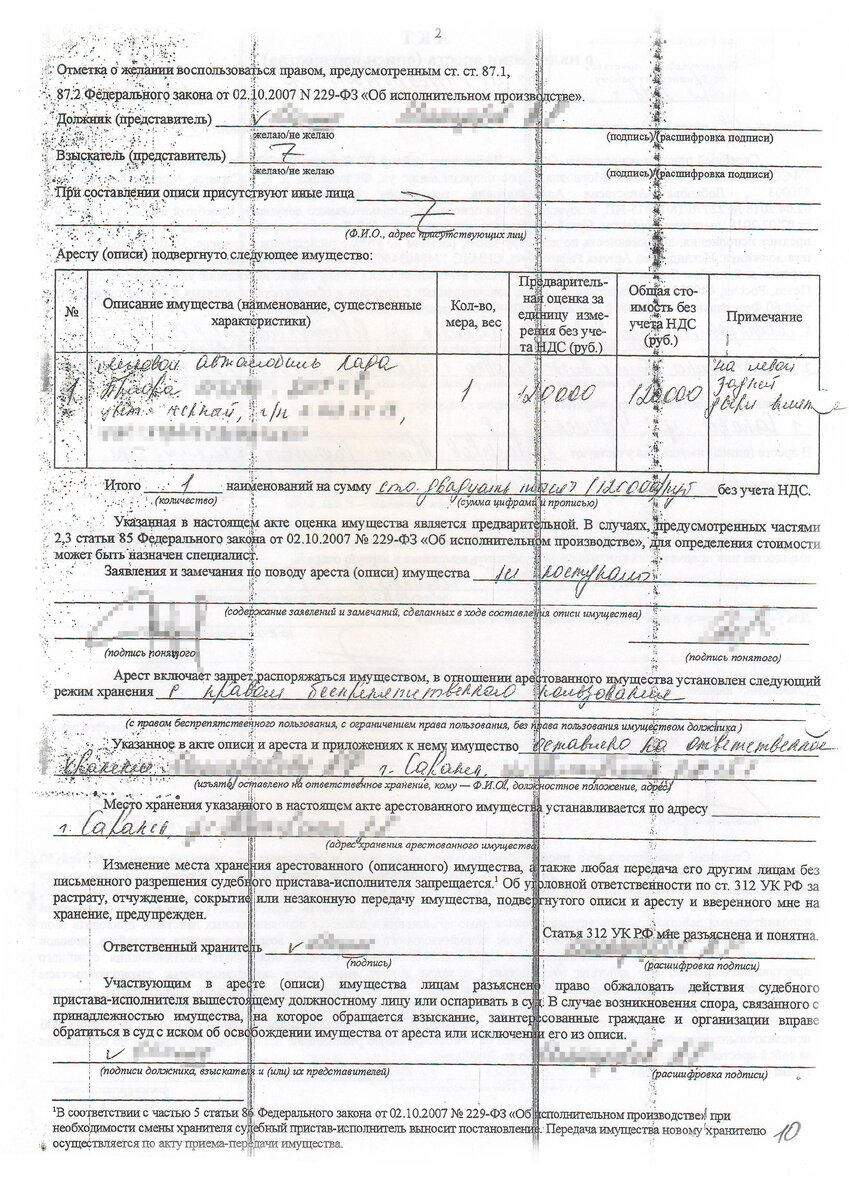 2
Отметка о желании воспользоваться правом, предусмотренным ст. ст. 87.1,
87.2 Федерального закона от 02.10.2007 N 229-ФЗ «Об исполнительном производстве».
Должник (представитель)
желаю/не желаю (подпись) (расшифровка подписи)
Взыскатель (представитель)
желаю/не желаю (подпись) (расшифровка подписи)
При составлении описи присутствуют иные лица
(Ф.И.О., адрес присутствующих лиц)
Аресту (описи) подвергнуто следующее имущество:
№ Описание имущества (наименование, существенные характеристики) Кол-во, мера, вес Предваритель-ная оценка за единицу изме-рения без уче-та НДС (руб.) Общая сто-имость без учета НДС (руб.) Примечание
1 легковой автомобиль лада 1 120000 120000 на левой
приора задней
цвет черный, г/н двери
Итого 1 наименований на сумму сто двадцать тысяч (120000) руб без учета НДС.
(количество) (сумма цифрами и прописью)
Указанная в настоящем акте оценка имущества является предварительной. В случаях, предусмотренных частями
2,3 статьи 85 Федерального закона от 02.10.2007 № 229-ФЗ «Об исполнительном производстве», для определения стоимости
может быть назначен специалист.
Заявления и замечания по поводу ареста (описи) имущества не поступило
(содержание заявлений и замечаний, сделанных в ходе составления описи имущества)
(подпись понятого) (подпись понятого)
Арест включает запрет распоряжаться имуществом, в отношении арестованного имущества установлен следующий
режим хранения с правом беспрепятственного пользования
(с правом беспрепятственного пользования, с ограничением права пользования, без права пользования имуществом должника)
Указанное в акте описи и ареста и приложениях к нему имущество оставлено на ответственное
хранение г. Саранск,
(изъято/ оставлено на ответственное хранение, кому — Ф.И.О., должностное положение, адрес)
Место хранения указанного в настоящем акте арестованного имущества устанавливается по адресу
г. Саранск,
(адрес хранения арестованного имущества)
Изменение места хранения арестованного (описанного) имущества, а также любая передача его другим лицам без
письменного разрешения судебного пристава-исполнителя запрещается.¹ Об уголовной ответственности по ст. 312 УК РФ за
растрату, отчуждение, сокрытие или незаконную передачу имущества, подвергнутого описи и аресту и вверенного мне на
хранение, предупрежден.
Статья 312 УК РФ мне разъяснена и понятна.
Ответственный хранитель
(подпись) (расшифровка подписи)
Участвующим в аресте (описи) имущества лицам разъяснено право обжаловать действия судебного
пристава-исполнителя вышестоящему должностному лицу или оспаривать в суд. В случае возникновения спора, связанного с
принадлежностью имущества, на которое обращается взыскание, заинтересованные граждане и организации вправе
обратиться в суд с иском об освобождении имущества от ареста или исключении его из описи.
(подписи должника, взыскателя и (или) их представителей) (расшифровка подписи)
¹В соответствии с частью 5 статьи 86 Федерального закона от 02.10.2007 № 229-ФЗ «Об исполнительном производстве» при
необходимости смены хранителя судебный пристав-исполнитель выносит постановление. Передача имущества новому хранителю
осуществляется по акту приема-передачи имущества.
10